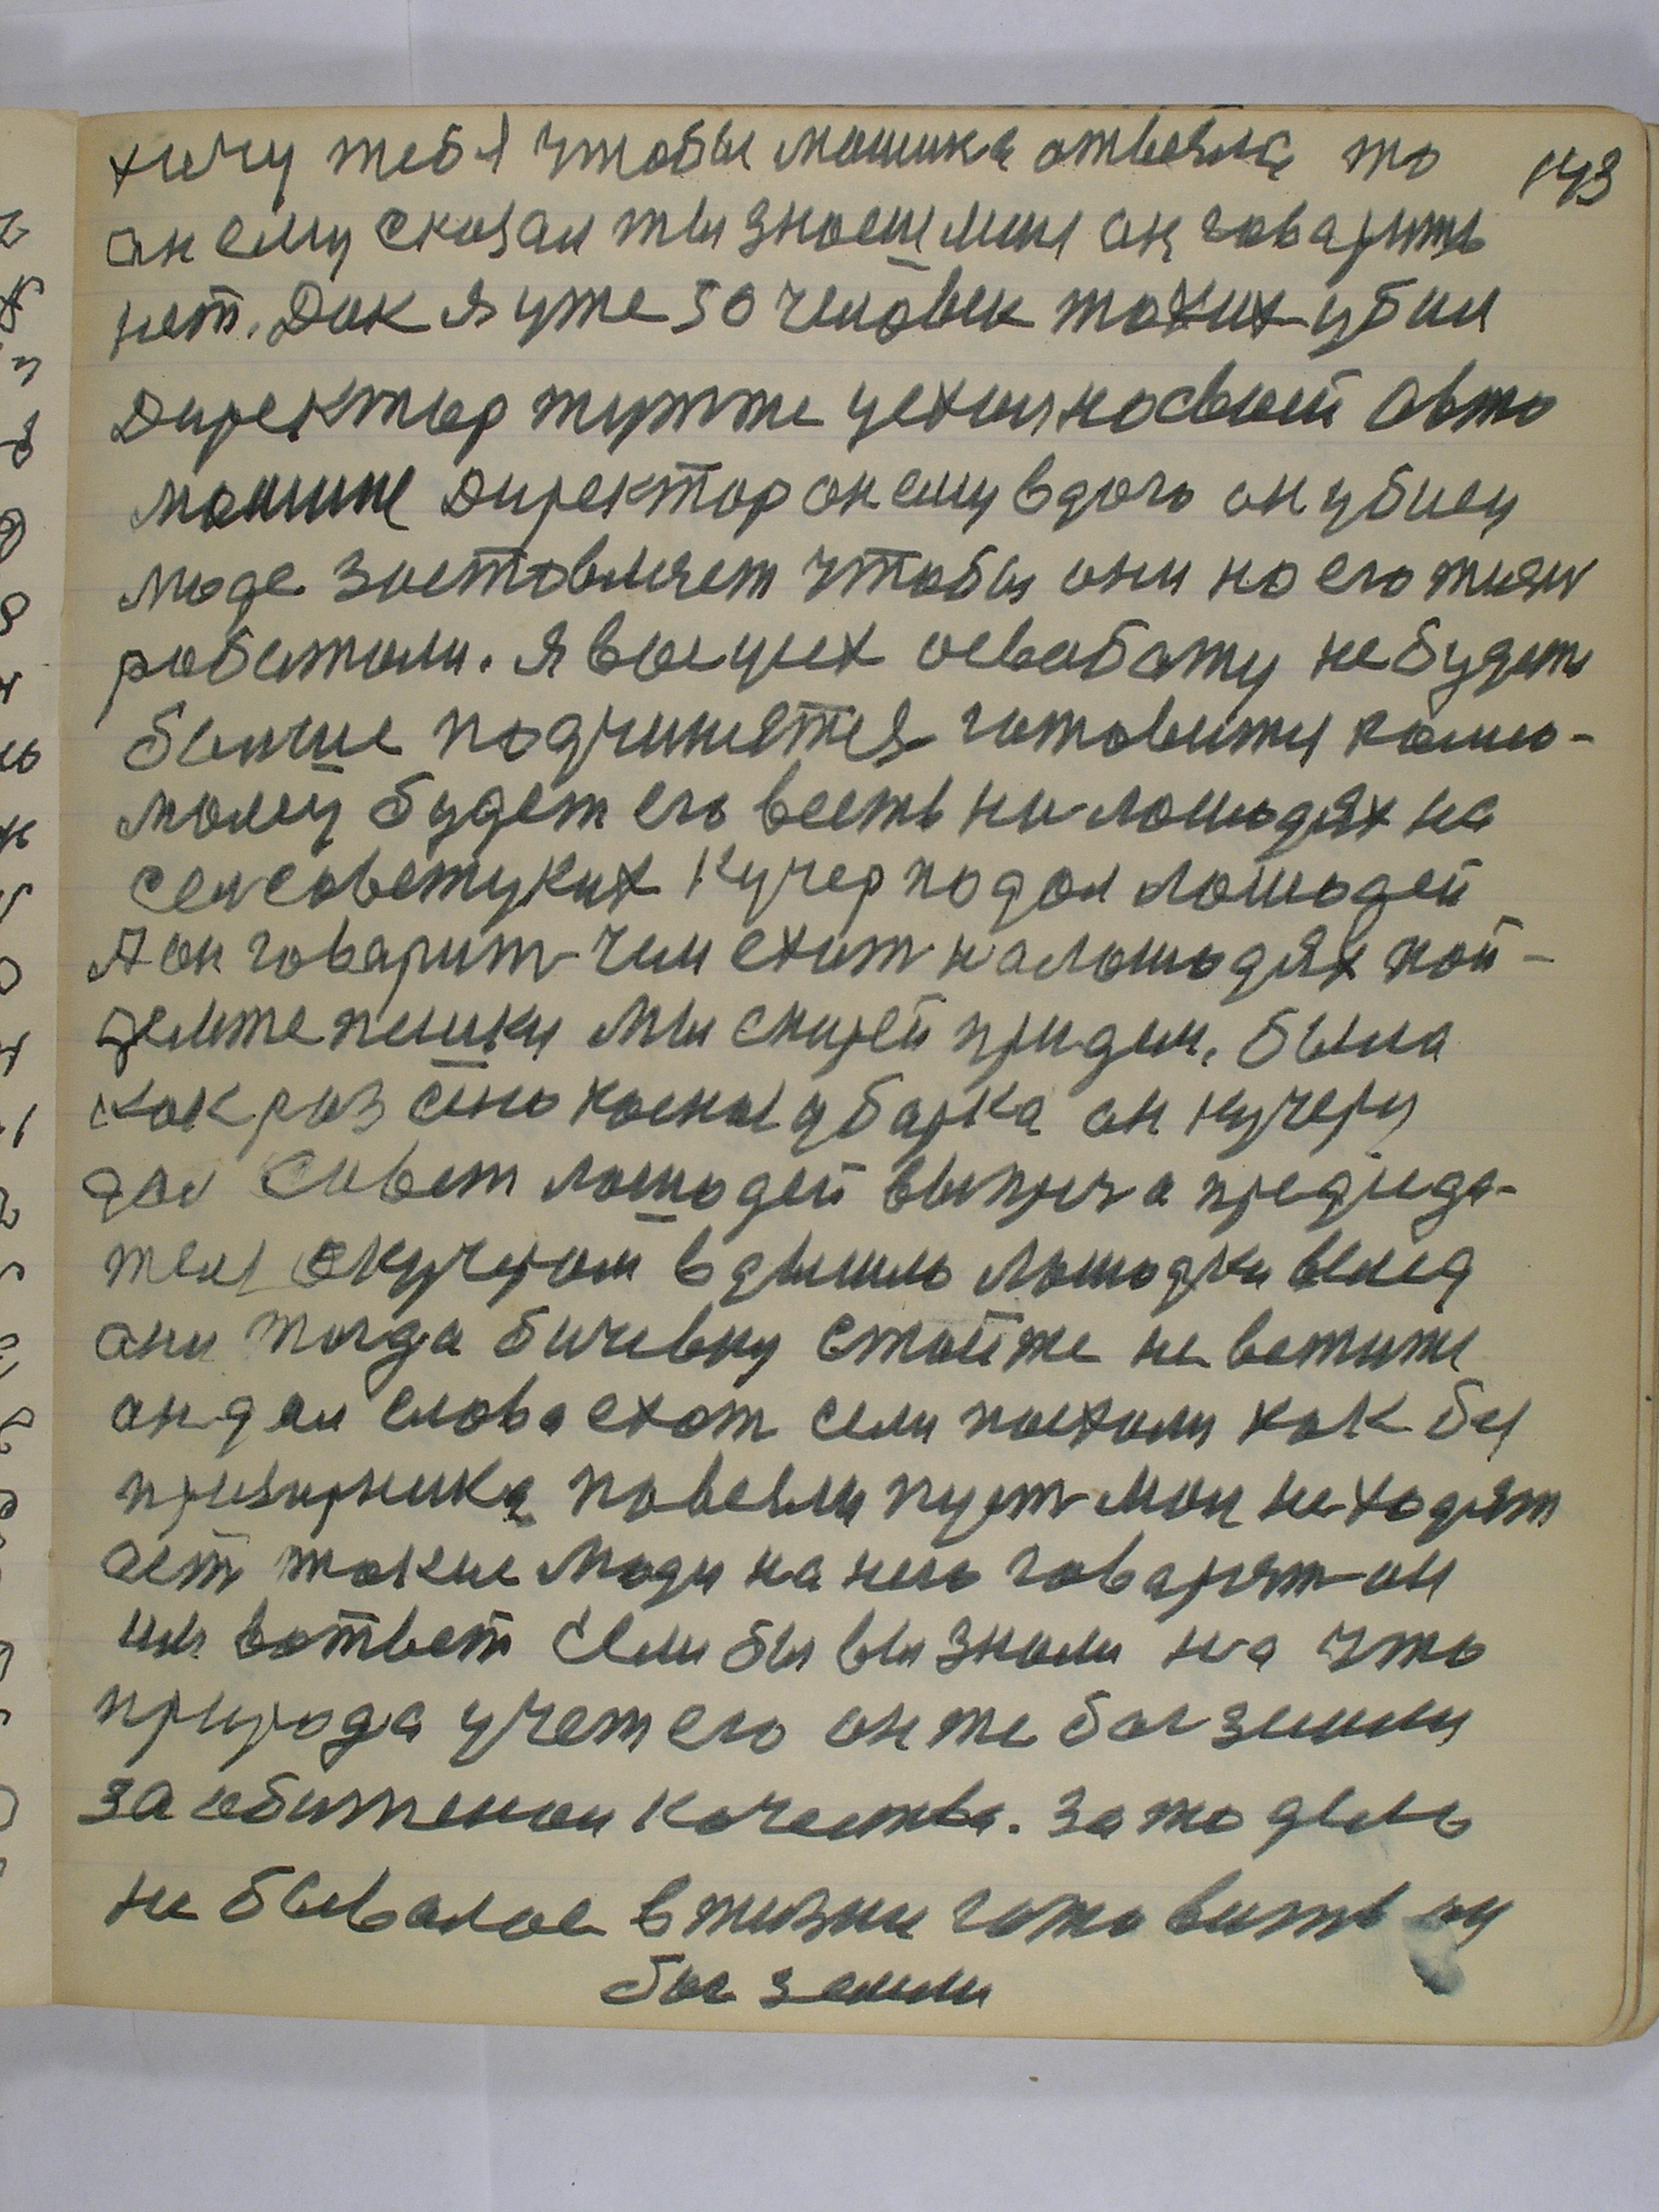 хочу тебя чтобы машина отвезла то 143
он ему сказал ты знаеш мини он говарить
нет. Дак я уже 50 человек таких убил
Директыр тутже уехил на свыей авто
машине Директор он ему вдого он убиец
люде заставляет чтобы они на его
работали. Я вас усех освабожу не будете
больше подчинятся готовитца
будет его весть на лошадях на
Кучер подал лошадей
А он говарит чем ехат на лошадях пой-
демте пешки мы скирей придем. была
как раз сено уборка он кучеру
дал Савет лошадей выпреч а председа-
тел с кучером в дышло лошадки
они тогда бичевку стойте не ветите
он дал слово ехат сели поехали как бы
повезли пуст мои не ходят
ест такие люди на него говарят он
им вответ Если бы вы знали на что
природа учет его он же бог земли
за качества. за то дело
не бывалое в жизни готовить
бог земли